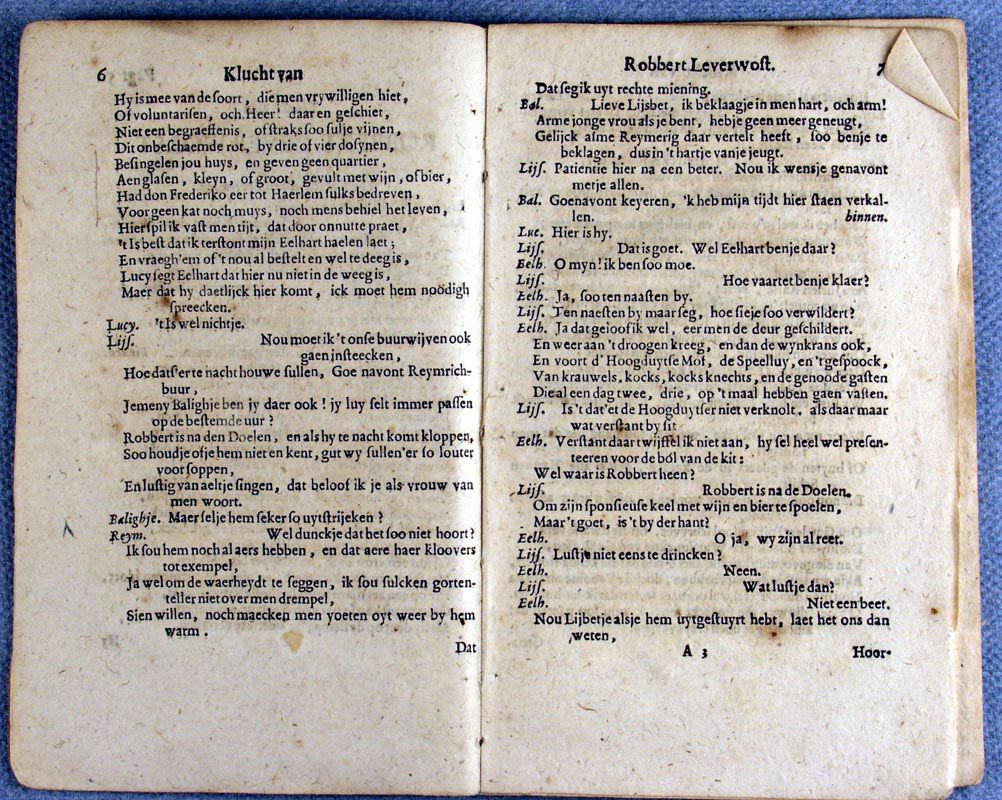 6 Klucht van
Hy is mee van de soort, die men vrywilligen hiet,
Of voluntarisen, och Heer! daar en geschiet,
Niet een begraeffenis, of straks soo sulje vijnen,
Dit onbeschaemde rot, by drie of vier dosynen,
Besingelen jou huys, en geven geen quartier,
Aen glasen, kleyn, of groot, gevult met wijn, of bier,
Had don Frederiko eer tot Haerlem sulks bedreven,
Voor geen kat noch muys, noch mens behiel het leven,
Hier spil ik vast men tijt, dat door onnutte praet,
't Is best dat ik terstont mijn Eelhart haelen laet;
En vraegh'em of 't nou al bestelt en wel te deeg is,
Lucy segt Eelhart dat hier nu niet in de weeg is,
Maer dat hy daetlijck hier komt, ick moet hem noodigh
spreecken.
Lucy. 't Is wel nichtje.
Lijs. Nou moet ik 't onse buurwijven ook
gaen insteecken,
Hoe datser te nacht houwe sullen, Goe navont Reymrich-
buur,
Jemeny Balighje ben jy daer ook! jy luy selt immer passen
op de bestemde uur?
Robbert is na den Doelen, en als hy te nacht komt kloppen,
Soo houdje ofje hem niet en kent, gut wy sullen'er so louter
voor soppen,
En lustig van aeltje singen, dat beloof ik je als vrouw van
men woort.
Balighje. Maer selje hem seker so uytstrijeken?
Reym. Wel dunckje dat het soo niet hoort?
Ik sou hem noch al aers hebben, en dat aere haer kloovers
tot exempel,
Ja wel om de waerheydt te seggen, ik sou sulcken gorten-
teller niet over men drempel,
Sien willen, noch maecken men yoeten oyt weer by hem
warm.
Dat
Robbert Leverwost. 7
Dat seg ik uyt rechte miening.
Bal. Lieve Lijsbet, ik beklaagje in men hart, och arm!
Arme jonge vrou als je bent, hebje geen meer geneugt,
Gelijck asme Reymerig daar vertelt heeft, soo benje te
beklagen, dus in 't hartje vanje jeugt.
Lijs. Patientie hier na een beter. Nou ik wensje genavont
metje allen.
Bal. Goenavont keyeren, 'k heb mijn tijdt hier staen verkal-
len. binnen.
Luc. Hier is hy.
Lijs. Dat is goet. Wel Eelhart benje daar?
Eelh. O myn! ik ben soo moe.
Lijs. Hoe vaartet benje klaer?
Eelh. Ja, soo ten naasten by.
Lijs. Ten naesten by maar seg, hoe sieje soo verwildert?
Eelh. Ja dat geloof ik wel, eer men de deur geschildert.
En weer aan 't droogen kreeg, en dan de wynkrans ook,
En voort d' Hoogduytse Mof, de Speelluy, en 'tgespoock,
Van krauwels, kocks, kocks knechts, en de genoode gasten
Die al een dag twee, drie, op 't maal hebben gaen vasten.
Lijs. Is 't dat'et de Hoogduytser niet verknolt, als daar maar
wat verstant by sit
Eelh. Verstant daar twijffel ik niet aan, hy sel heel wel presen-
teeren voor de ból van de kit:
Wel waar is Robbert heen?
Lijs. Robbert is na de Doelen.
Om zijn sponsieuse keel met wijn en bier te spoelen,
Maar 't goet, is 't by der hant?
Eelh. O ja, wy zijn al reet.
Lijs. Lustje niet eens te drincken?
Eelh. Neen.
Lijs. Wat lustje dan?
Eelh. Niet een beet.
Nou Lijbetje alsje hem uytgestuyrt hebt, laet het ons dan
weten,
A 3 Hoor-